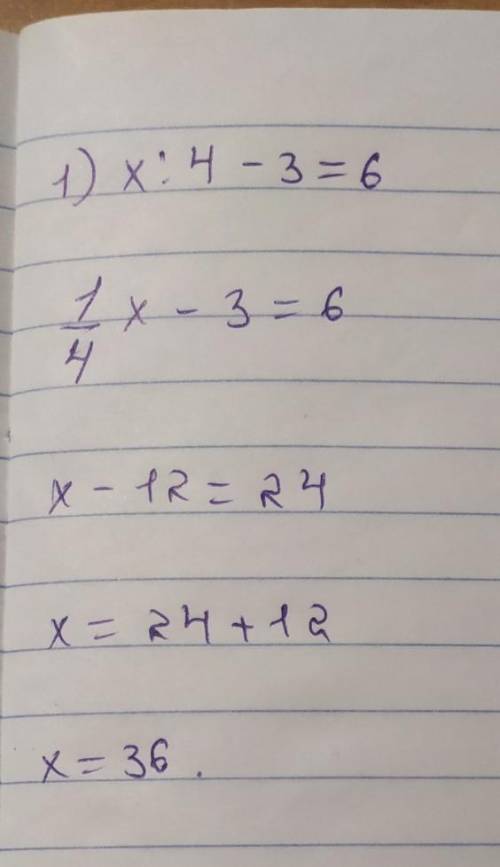 1) x : 4 - 3 = 6
1/4 x - 3 = 6
x - 12 = 24
x = 24 + 12
x = 36.